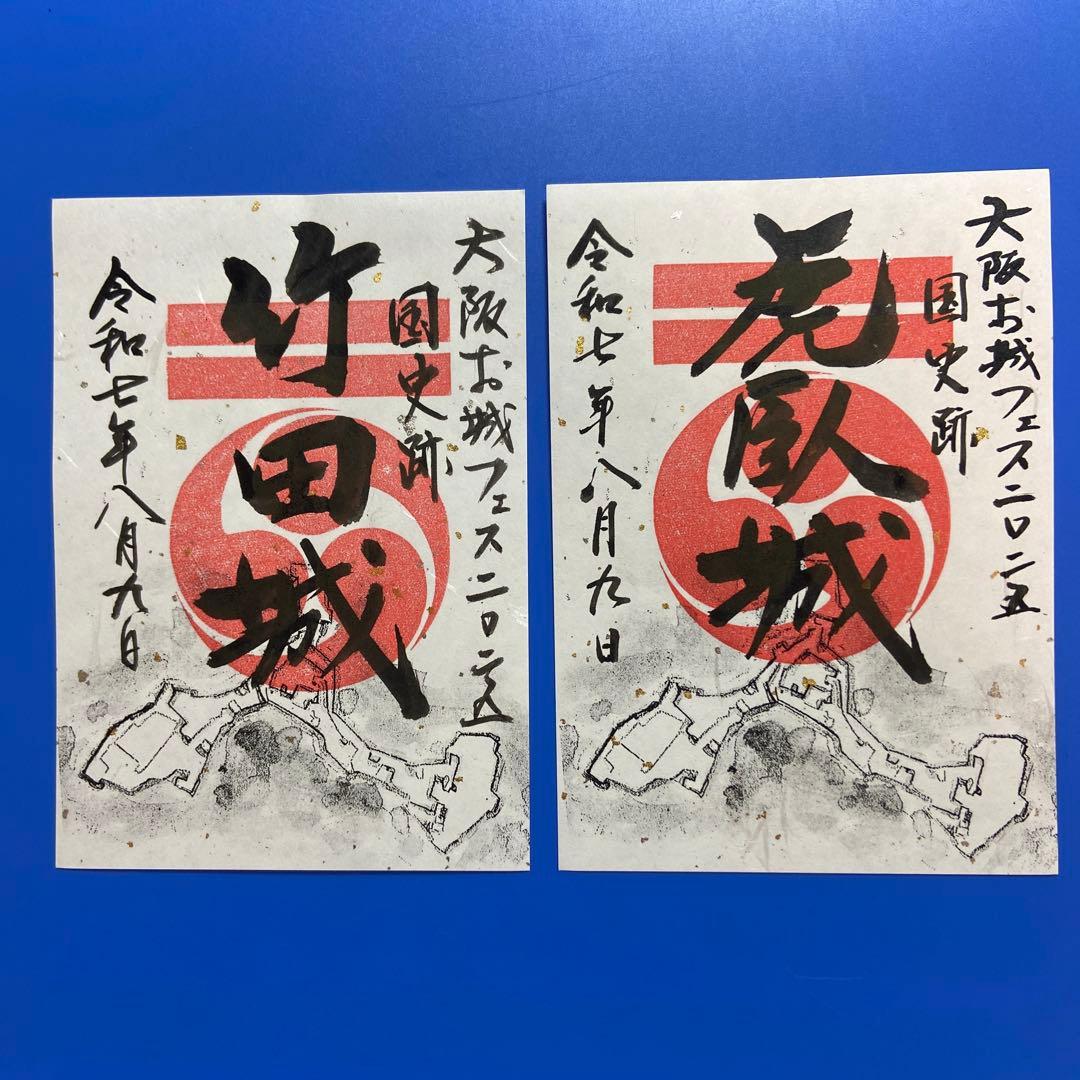 大阪お城フェス二〇二五
国史跡
竹田城
令和七年八月九日
大阪お城フェス二〇二五
国史跡
虎臥城
令和七年八月九日